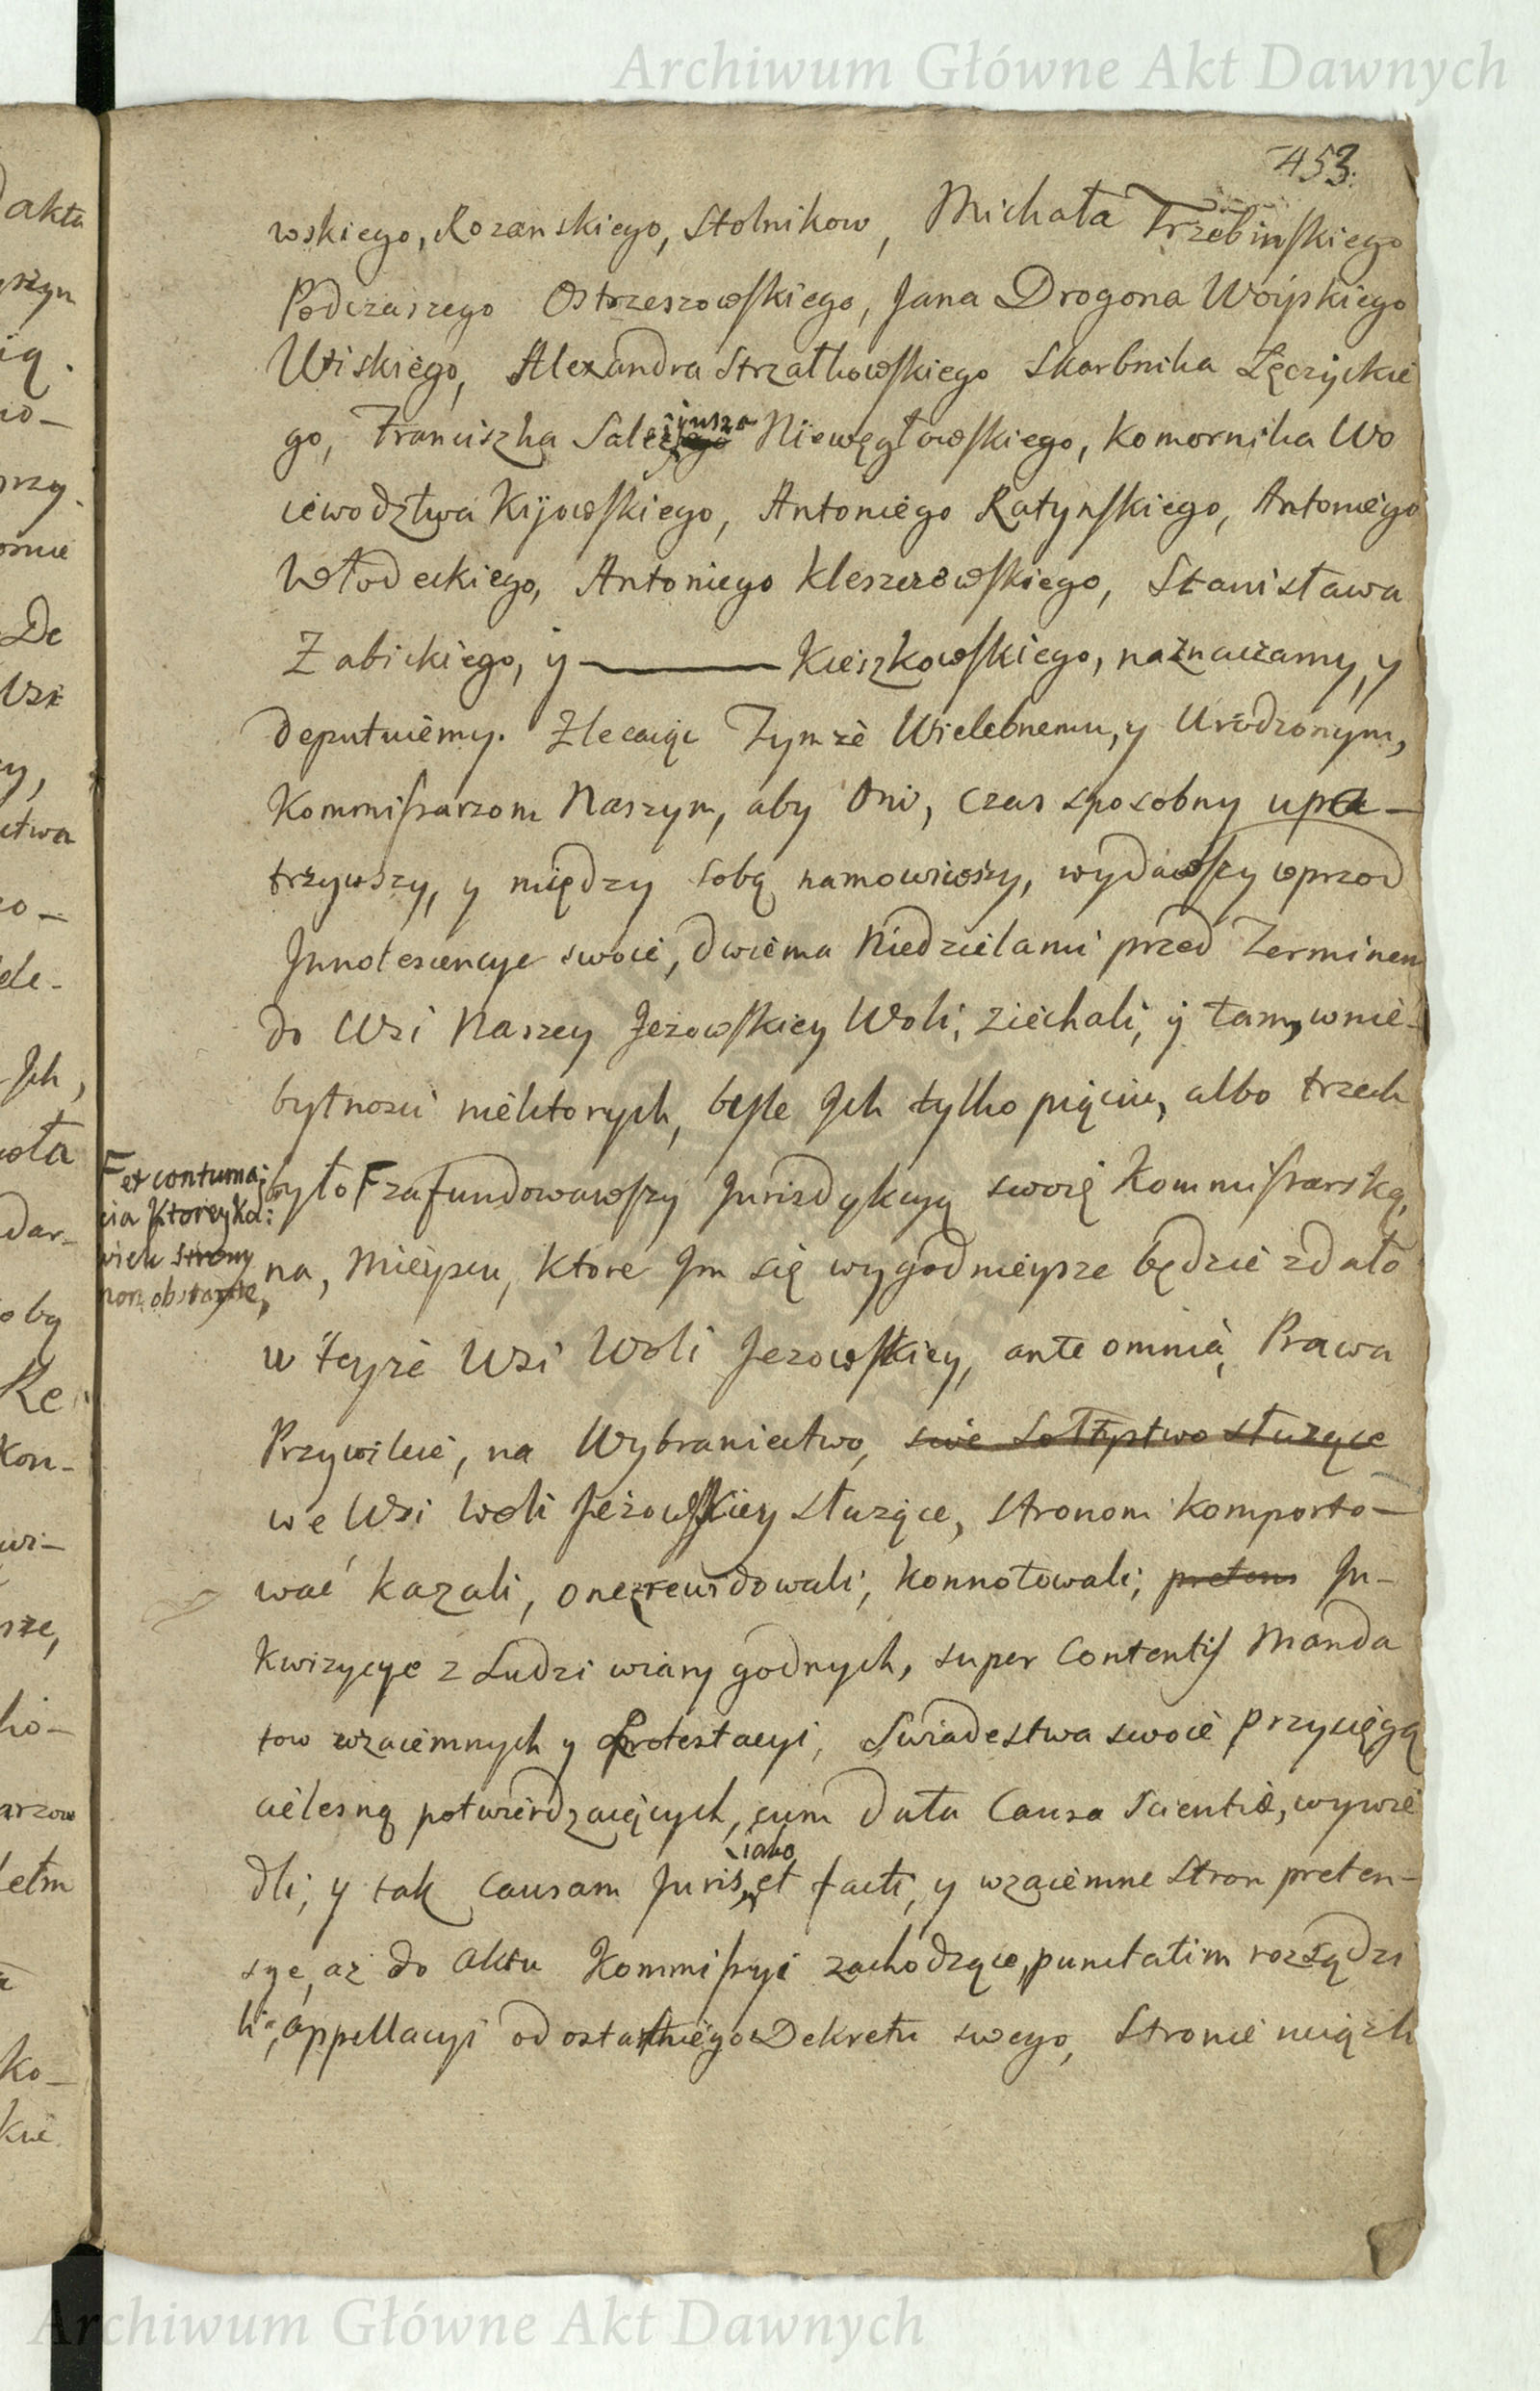 Archiwum Główne Akt Dawnych
453.
wskiego, Rozanskiego, Stolnikow, Michała Trzebinskiego
Podczaszego Ostrzeszowskiego, Jana Drogona Woyskiego
Wiskiego, Alexandra Strzałkowskiego Skarbnika Łęczyckie
go, Franciszka Salezyusza Niewęgłowskiego, Komornika Wo
iewodztwa Kijowskiego, Antoniego Ratynskiego, Antoniego
Włodeckiego, Antoniego Kleszczowskiego, Stanisława
Zabickiego, y ——— Kieszkowskiego, naznaczamy, y
deputuiemy. Zlecaiąc Tymże Wielebnemu, y Urodzonym,
Kommissarzom Naszym, aby Oni, czas sposobny upa-
trzywszy, y między sobą namowiwszy, wydawszy wprzod
Innotescencye swoie, dwiema Niedzielami przed Terminem
do Wsi Naszey Jeżowskiey Woli, ziechali, y tam, w nie-
bytnosci niektorych, byle Ich tylko pięciu, albo trzech
było F zafundowawszy Jurisdykcyą swoię Kommissarską,
F et contuma:
cia ktoreyka:
wiek strony
non obstante,
na, Mieyscu, ktore Im się wygodnieysze będzie zdało
w teyże Wsi Woli Jezowskiey, ante omnia, Prawa
Przywileie, na Wybraniectwo, sive Sołtystwo służące
we Wsi Woli Jeżowskiey służące, stronom komporto-
wać kazali, one zrewidowali, konnotowali, pretens In-
kwizycye z Ludzi wiary godnych, super Contentis Manda
tow wzaiemnych y Protestacyi, Swiadestwa swoie przysięgą
cielesną potwierdzaiących, cum data Causa Scientiæ, wywie
dli, y tak Causam Juris, iako et facti, y wzaiemne Stron preten-
sye, aż do aktu Kommissyi zachodzące, punctatim rozsądzi
li, appellacyi od ostatniego Dekretu swego, Stronie
Archiwum Główne Akt Dawnych